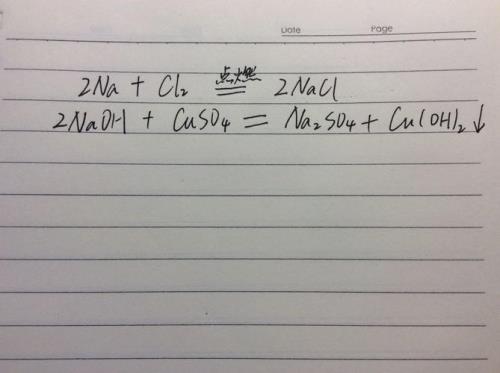 Date Page
2Na + Cl₂ 点燃 == 2NaCl
2NaOH + CuSO₄ = Na₂SO₄ + Cu(OH)₂↓